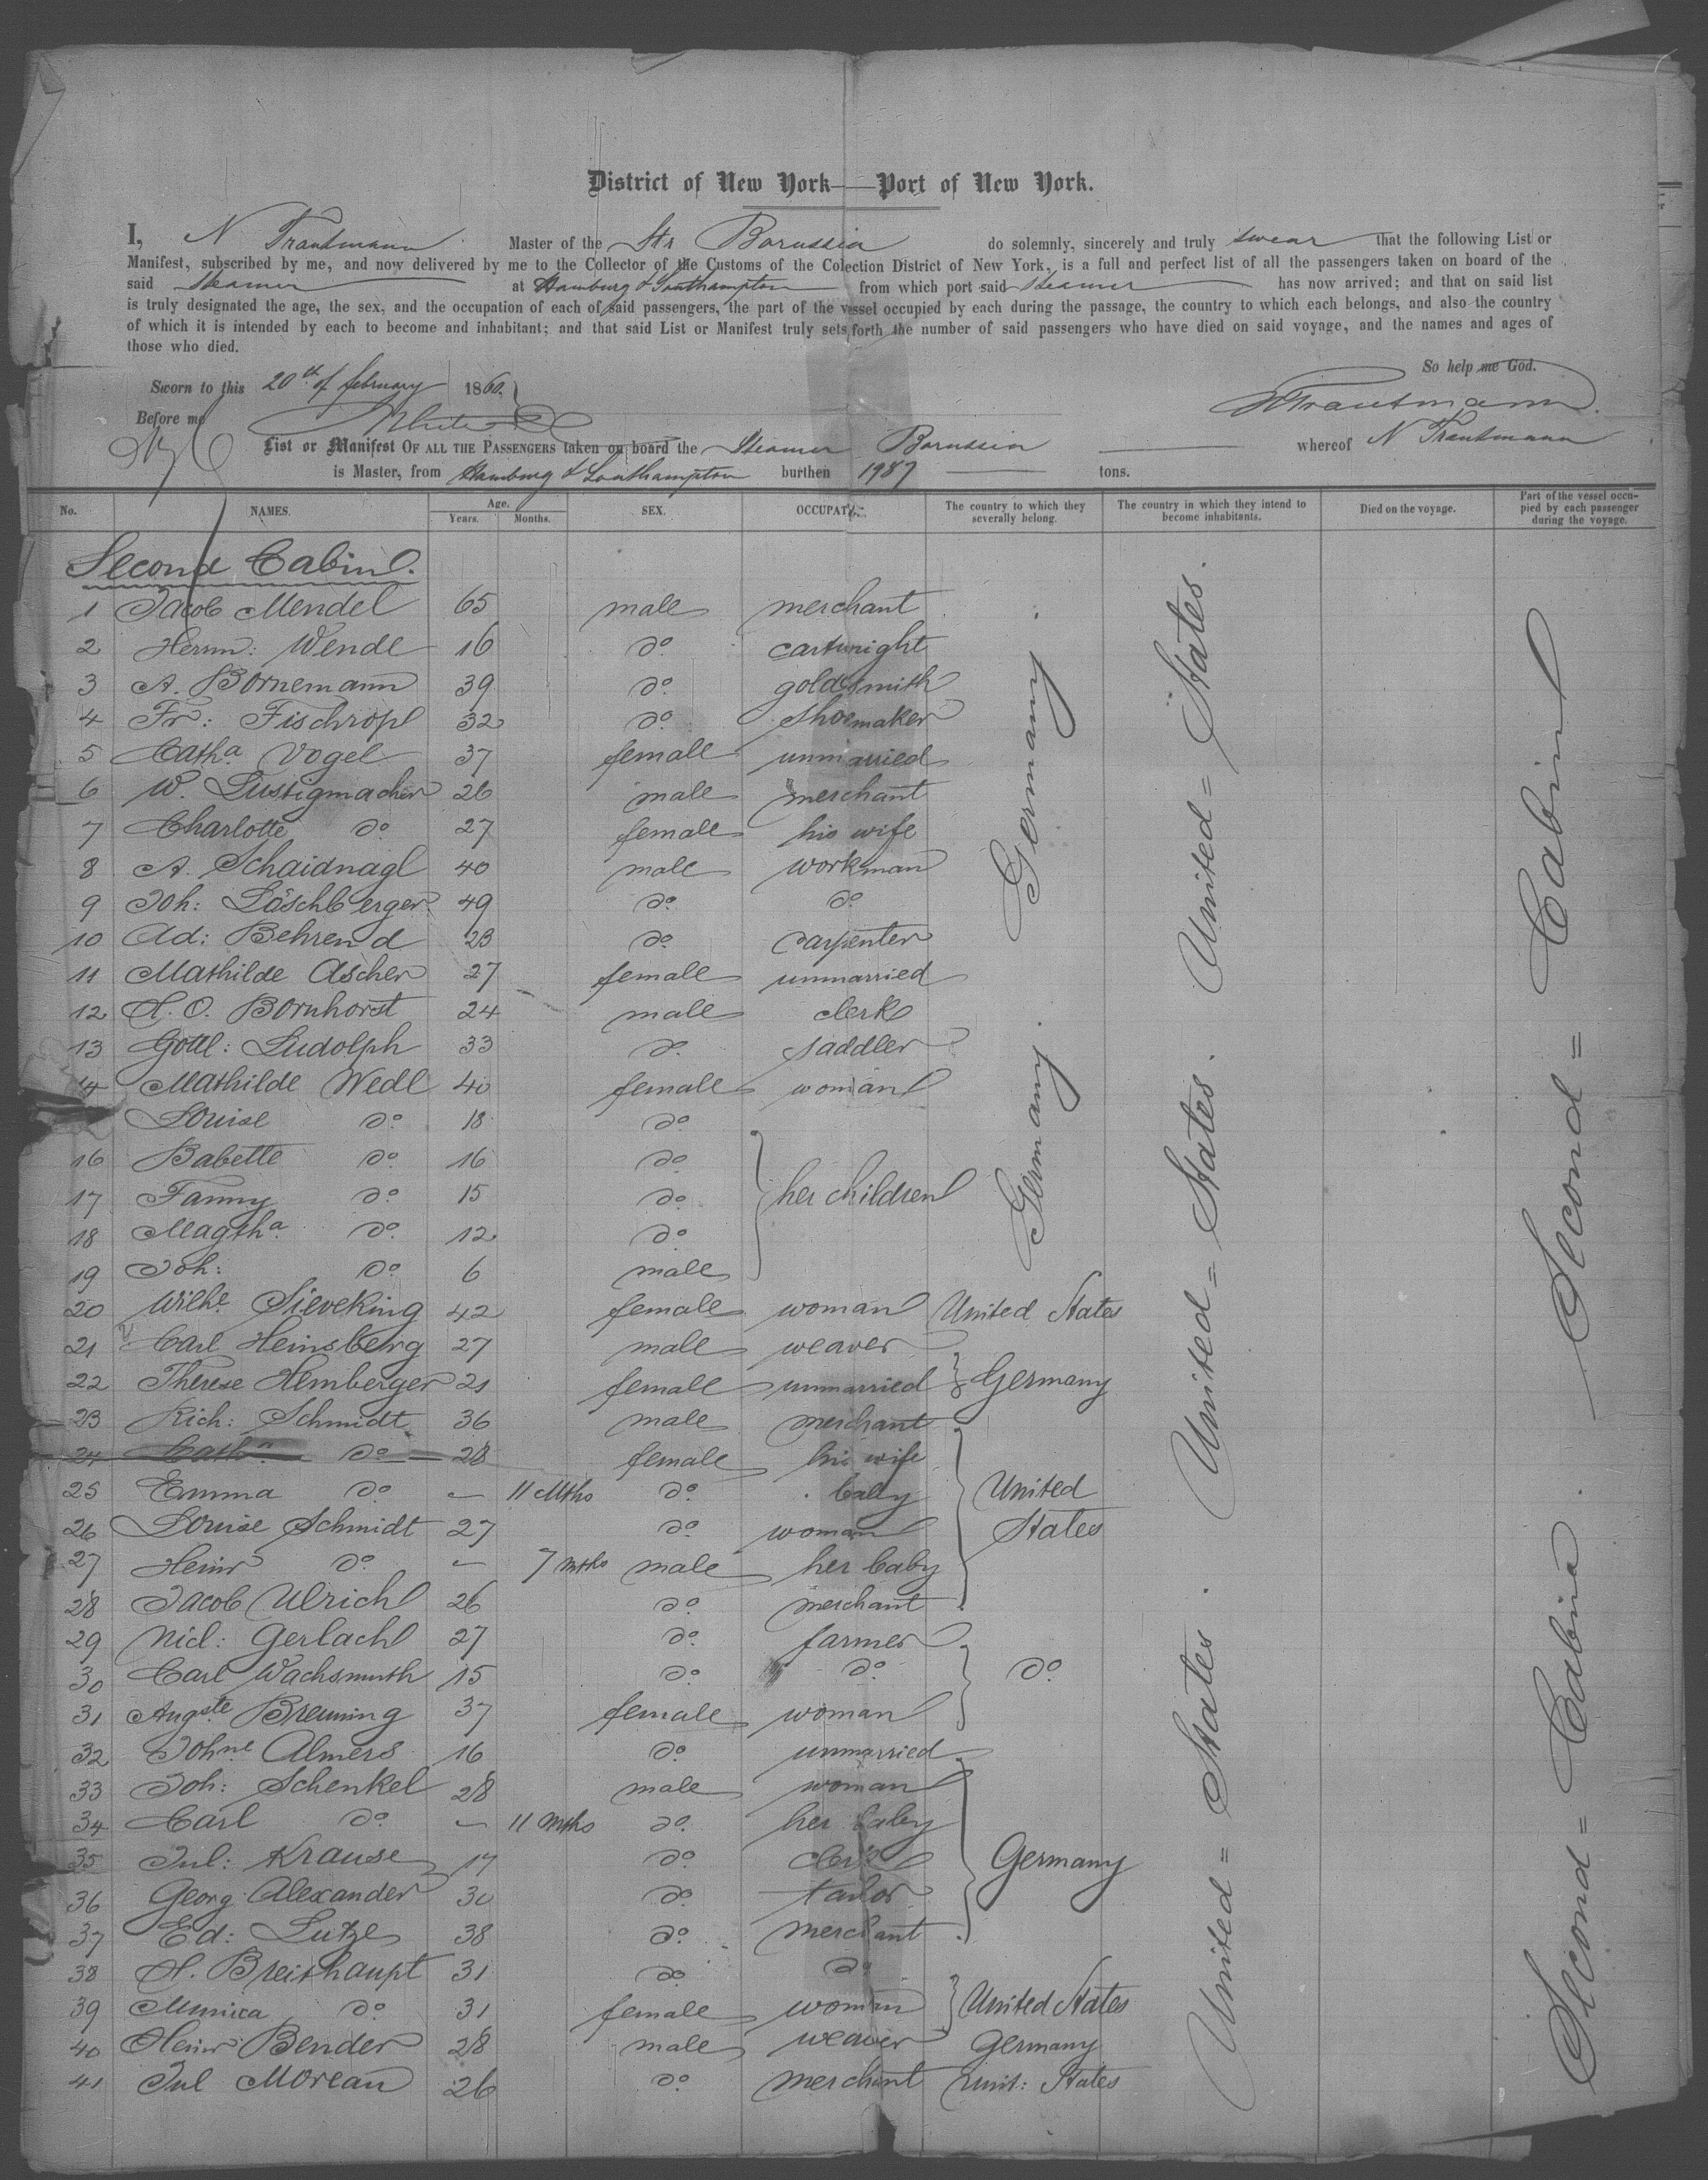 District of New York — Port of New York.
I, N Trautmann Master of the Str Borussia do solemnly, sincerely and truly swear that the following List or
Manifest, subscribed by me, and now delivered by me to the Collector of the Customs of the Colection District of New York, is a full and perfect list of all the passengers taken on board of the
said Steamer at Hamburg & Southampton from which port said Steamer has now arrived; and that on said list
is truly designated the age, the sex, and the occupation of each of said passengers, the part of the vessel occupied by each during the passage, the country to which each belongs, and also the country
of which it is intended by each to become and inhabitant; and that said List or Manifest truly sets forth the number of said passengers who have died on said voyage, and the names and ages of
those who died.
So help me God.
Sworn to this 20th of february 1860.
NTrautmann.
Before me
List or Manifest OF ALL THE PASSENGERS taken on board the Steamer Borussia whereof N Trautmann
is Master, from Hamburg & Southampton burthen 1987 tons.
No. NAMES. Age. Years. Months. SEX. OCCUPAT The country to which they severally belong. The country in which they intend to become inhabitants. Died on the voyage. Part of the vessel occu-pied by each passenger during the voyage.
Second Cabin.
1 Jacob Mendel 65 male merchant
2 Herm: Wende 16 do cartwright
3 A. Bornemann 39 do goldsmith
4 Fr: Fischropf 32 do shoemaker
5 Catha Vogel 37 female unmarried
6 W. Lustigmacher 26 male merchant
7 Charlotte do 27 female his wife
8 A. Schaidnagl 40 male workman
9 Joh: Löschberger 49 do do
10 Ad: Behrend 23 do carpenter
11 Mathilde Ascher 27 female unmarried
12 H. O. Bornhorst 24 male clerk
13 Gottl: Ludolph 33 do saddler
14 Mathilde Wedl 40 female woman
Louise do 18 do
16 Babette do 16 do
17 Fanny do 15 do her children
18 Magtha do 12 do
19 Joh: do 6 male
20 Wilhe Sieveking 42 female woman United States
21 Carl Heinsberg 27 male weaver
22 Therese Hemberger 21 female unmarried Germany
23 Rich: Schmidt 36 male merchant
24 Catha do 28 female his wife
25 Emma do — 11 Mths do baby United
26 Louise Schmidt 27 do woman States
27 Heinr do — 7 mths male her baby
28 Jacob Ulrich 26 do merchant
29 Nicl: Gerlach 27 do farmer
30 Carl Wachsmuth 15 do do do
31 Auguste Breuning 37 female woman
32 Johne Almers 16 do unmarried
33 Joh: Schenkel 28 male woman
34 Carl do — 11 Mths do her baby
35 Jul: Krause 17 do clerk Germany
36 Georg Alexander 30 do tailor
37 Ed: Lutze 38 do merchant
38 H. Breithaupt 31 do do
39 do 31 female woman United States
40 Heinr Bender 28 male weaver Germany
41 Jul Moreau 26 do merchant Unit: States
Germany. Germany.
United = States. United = States. United = States. United = States.
Second = Cabin. Second = Cabin